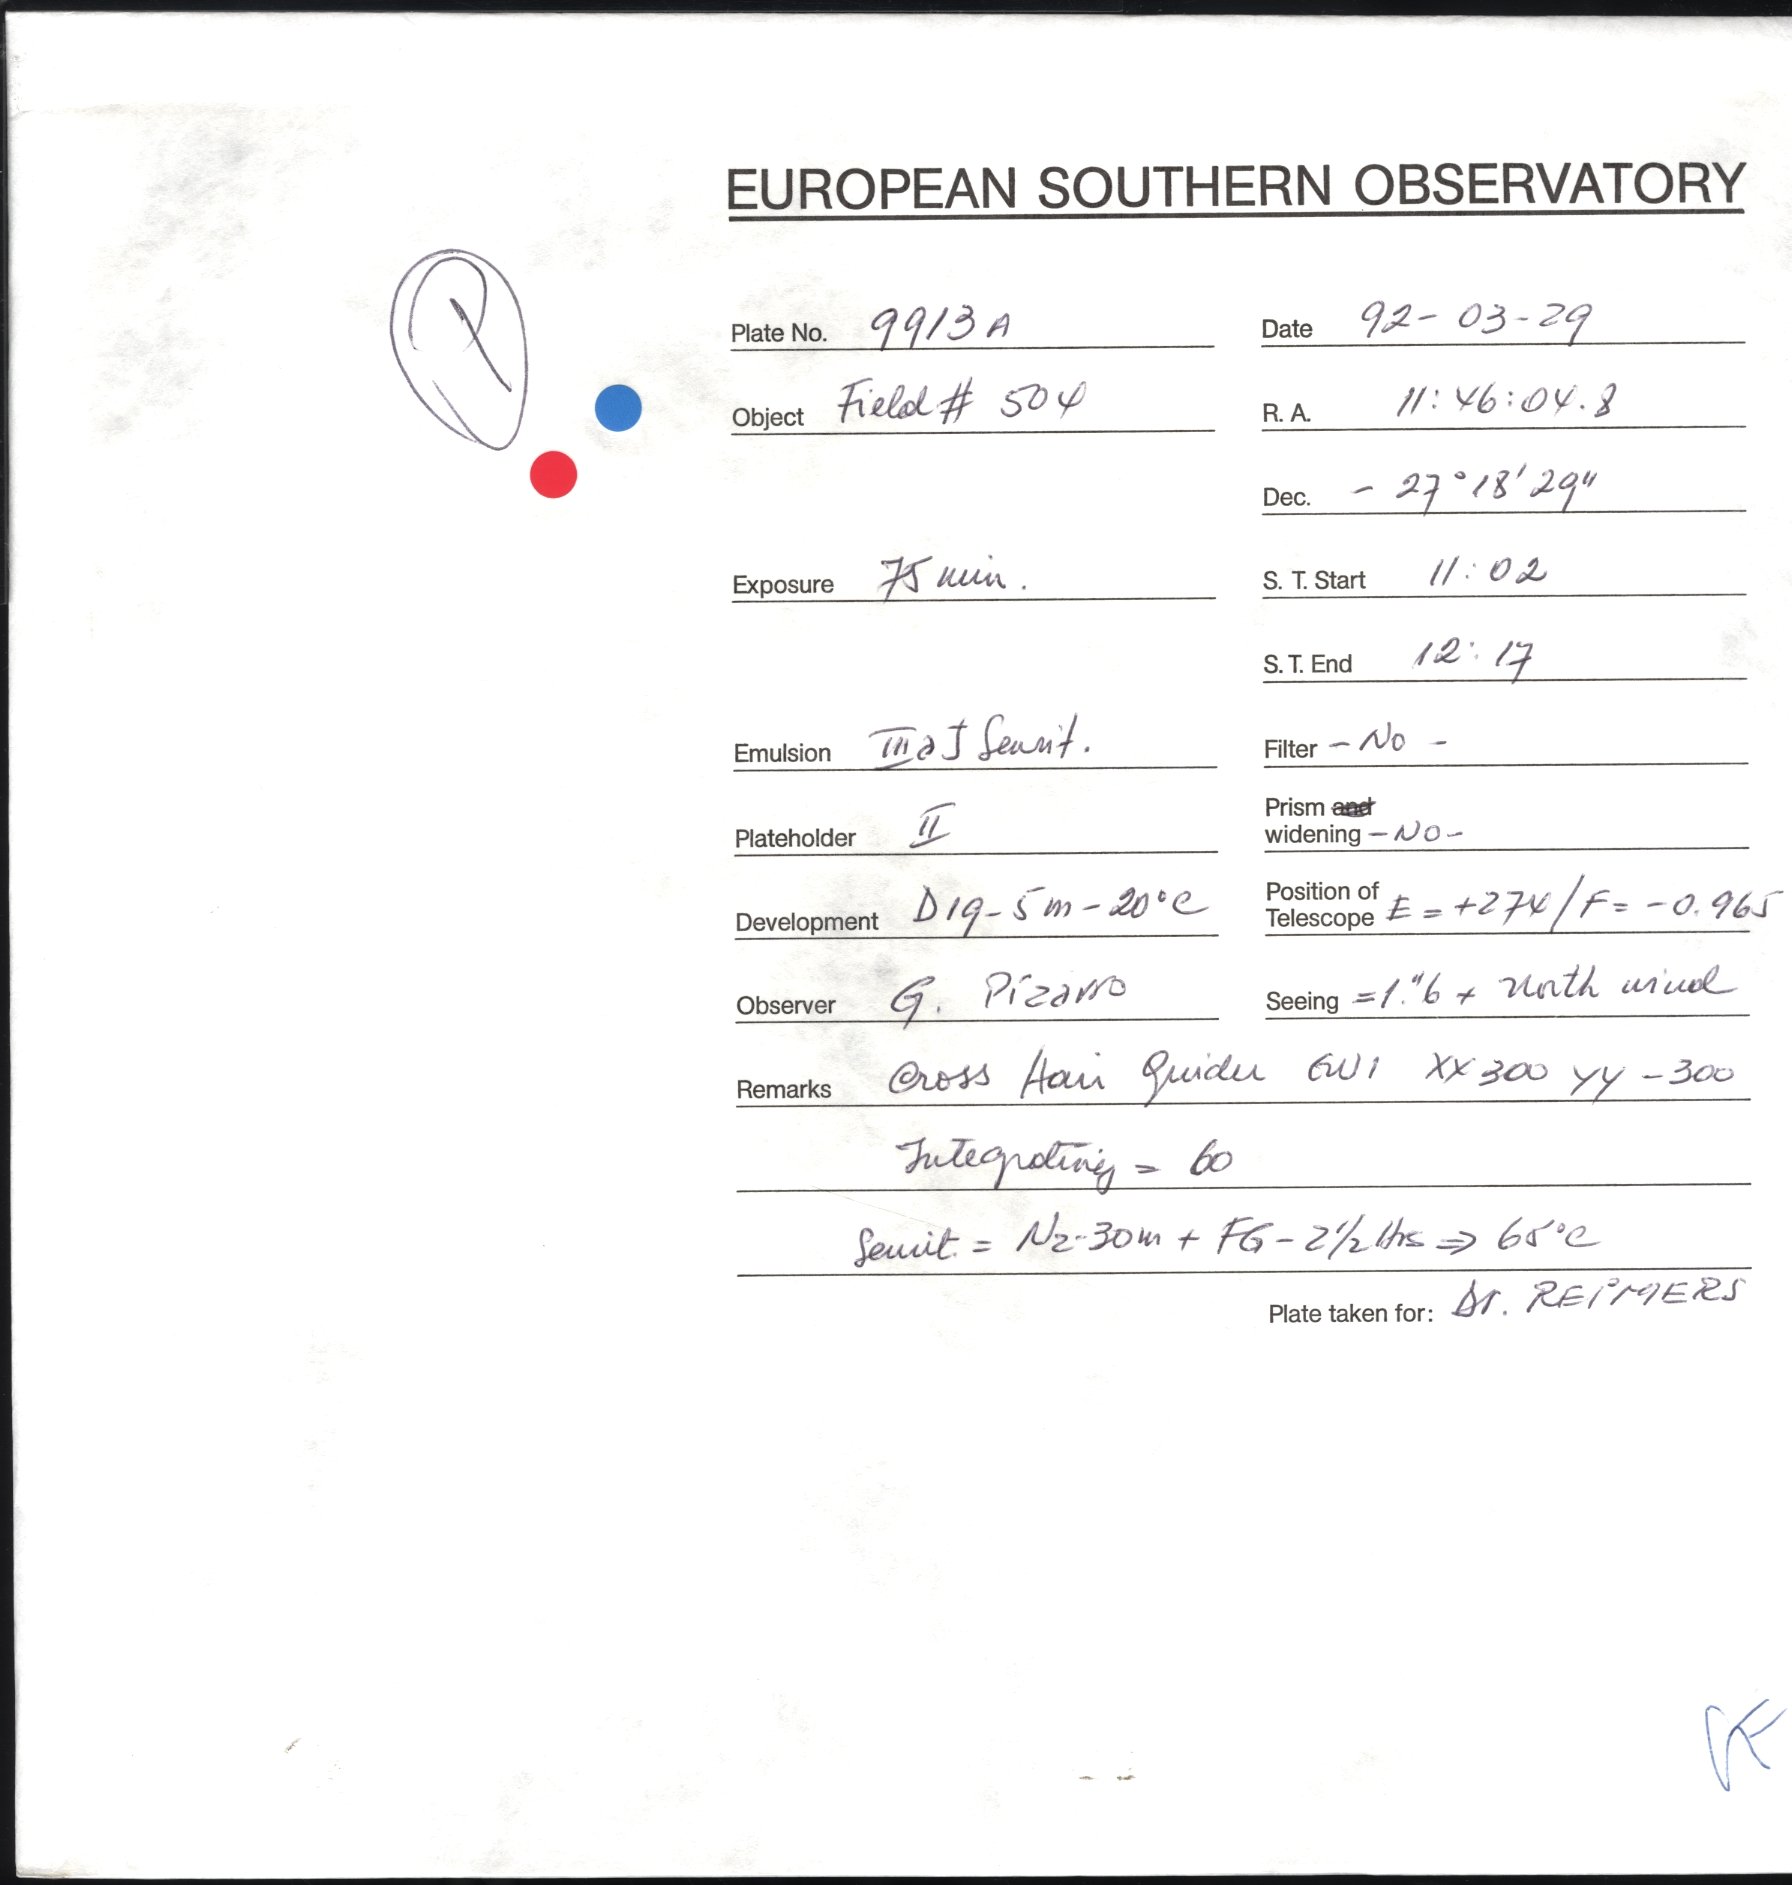 EUROPEAN SOUTHERN OBSERVATORY
P
Plate No. 9913A Date 92-03-29
Object Field # 504 R. A. 11:46:04.8
Dec. - 27°18'29"
Exposure 75 min. S. T. Start 11:02
S. T. End 12:17
Emulsion IIIaJ Sensit. Filter - No -
Plateholder II Prism and
widening - No -
Development D19-5m-20°C Position of
Telescope E = +274/F = -0.965
Observer G. Pizarro Seeing = 1."6 + North wind
Remarks Cross Hair Guider GW1 XX300 YY-300
Integrating = 60
Sensit. = N2-30m + FG-2½Hrs ⇒ 65°C
Plate taken for: Dr. REIMERS